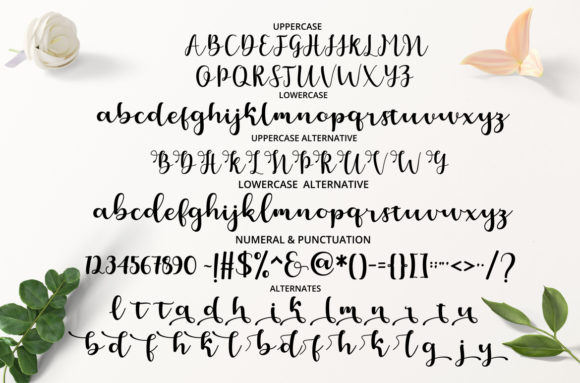 UPPERCASE
ABCDEFGHIJKLMN
OPQRSTUVWXYZ
LOWERCASE
abcdefghijklmnopqrstuvwxyz
UPPERCASE ALTERNATIVE
BDHKLNPRUVWY
LOWERCASE ALTERNATIVE
abcdefghijklmnopqrstuvwxyz
NUMERAL & PUNCTUATION
1234567890 ~!#$%^&@*()-={}[]:;"'<>../?
ALTERNATES
l t t a d h i k l m n r t u
b d f h k l b d f h k l g j y